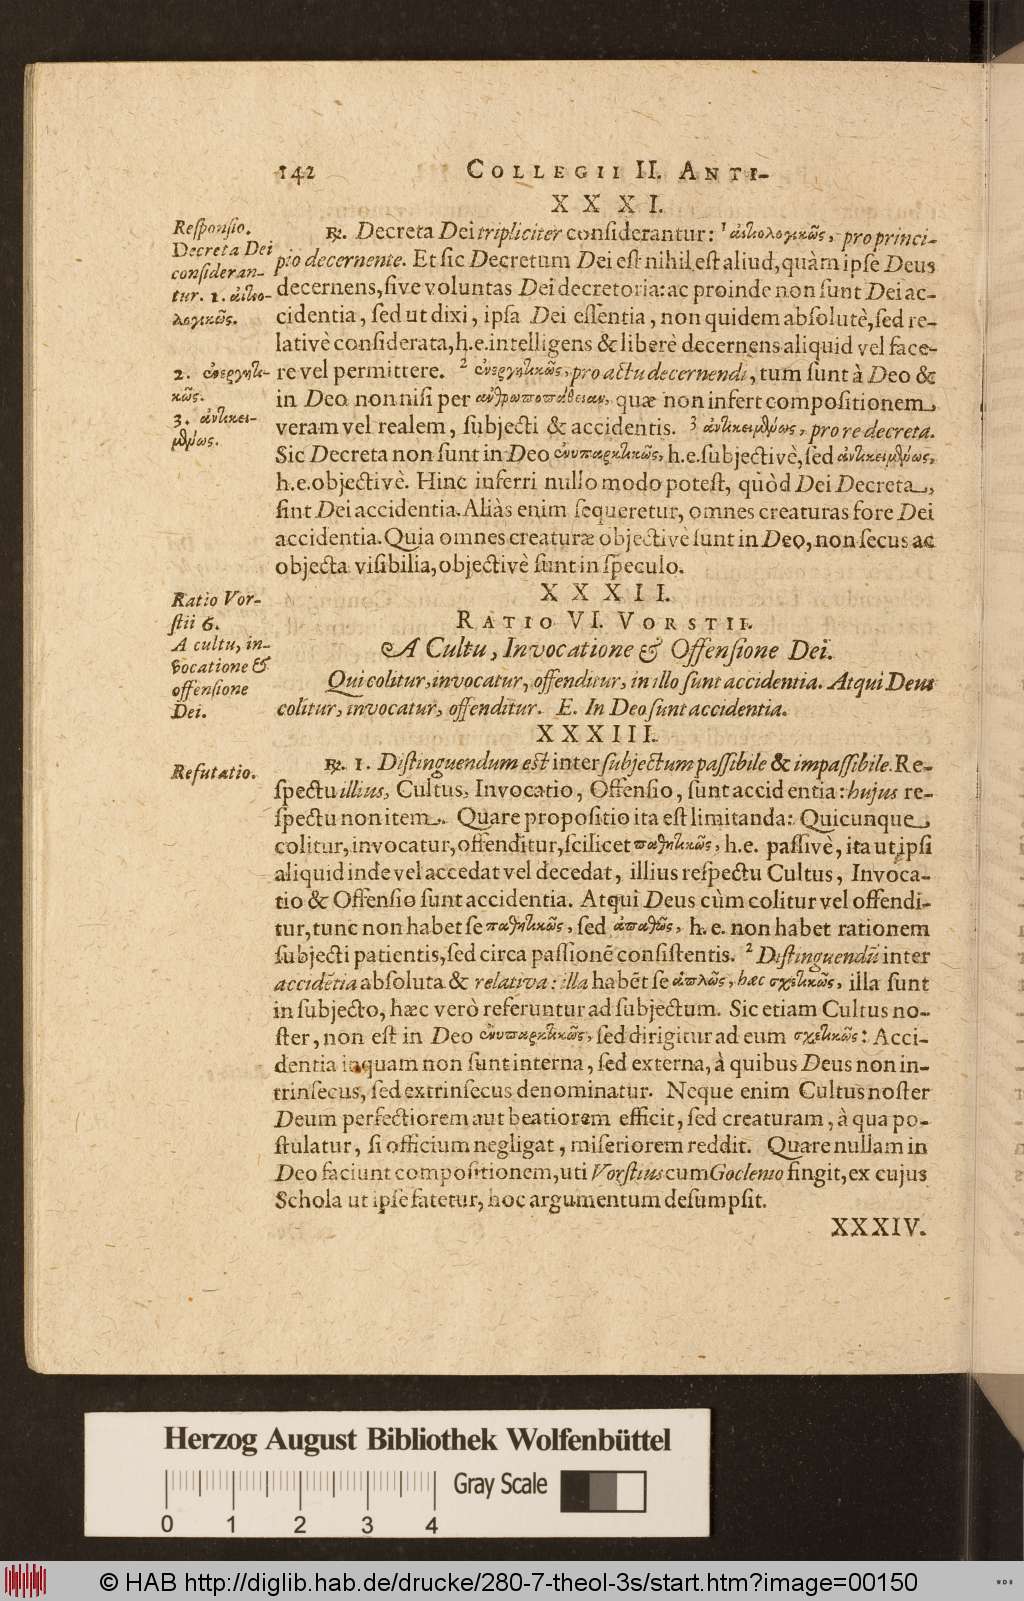 142 COLLEGII II. ANTI-
XXXI.
Responsio.
Decreta Dei
consideran-
tur. 1. αἰτιο-
λογικῶς.
2. ἐνεργητι-
κῶς.
3. ἀντικει-
μένως.
℞. Decreta Dei tripliciter considerantur: ¹ αἰτιολογικῶς, pro princi-
pio decernente. Et sic Decretum Dei est nihil est aliud, quàm ipse Deus
decernens, sive voluntas Dei decretoria: ac proinde non sunt Dei ac-
cidentia, sed ut dixi, ipsa Dei essentia, non quidem absolutè, sed re-
lativè considerata, h.e. intelligens & liberè decernens aliquid vel face-
re vel permittere. ² ἐνεργητικῶς, pro actu decernendi, tum sunt à Deo &
in Deo non nisi per ἀνθρωποπάθειαν, quæ non infert compositionem
veram vel realem, subjecti & accidentis. ³ ἀντικειμένως, pro re decreta.
Sic Decreta non sunt in Deo ἐνυπαρκτικῶς, h.e. subjectivè, sed ἀντικειμένως,
h.e. objectivè. Hinc inferri nullo modo potest, quòd Dei Decreta,
sint Dei accidentia. Aliàs enim sequeretur, omnes creaturas fore Dei
accidentia. Quia omnes creaturæ objectivè sunt in Deo, non secus ac
objecta visibilia, objectivè sunt in speculo.
XXXII.
Ratio Vor-
stii 6.
A cultu, in-
vocatione &
offensione
Dei.
RATIO VI. VORSTII.
A Cultu, Invocatione & Offensione Dei.
Qui colitur, invocatur, offenditur, in illo sunt accidentia. Atqui Deus
colitur, invocatur, offenditur. E. In Deo sunt accidentia.
XXXIII.
Refutatio.
℞. 1. Distinguendum est inter subjectum passibile & impassibile. Re-
spectu illius, Cultus, Invocatio, Offensio, sunt accidentia: hujus re-
spectu non item. Quare propositio ita est limitanda: Quicunque
colitur, invocatur, offenditur, scilicet παθητικῶς, h.e. passivè, ita ut ipsi
aliquid inde vel accedat vel decedat, illius respectu Cultus, Invoca-
tio & Offensio sunt accidentia. Atqui Deus cùm colitur vel offendi-
tur, tunc non habet se παθητικῶς, sed ἀπαθῶς, h.e. non habet rationem
subjecti patientis, sed circa passionē consistentis. ² Distinguendū inter
accidētia absoluta & relativa: illa habēt se ἁπλῶς, hæc σχετικῶς, illa sunt
in subjecto, hæc verò referuntur ad subjectum. Sic etiam Cultus no-
ster, non est in Deo ἐνυπαρκτικῶς, sed dirigitur ad eum σχετικῶς: Acci-
dentia inquam non sunt interna, sed externa, à quibus Deus non in-
trinsecus, sed extrinsecus denominatur. Neque enim Cultus noster
Deum perfectiorem aut beatiorem efficit, sed creaturam, à qua po-
stulatur, si officium negligat, miseriorem reddit. Quare nullam in
Deo faciunt compositionem, uti Vorstius cum Goclenio fingit, ex cujus
Schola ut ipse fatetur, hoc argumentum desumpsit.
XXXIV.
Herzog August Bibliothek Wolfenbüttel
Gray Scale
0 1 2 3 4
© HAB http://diglib.hab.de/drucke/280-7-theol-3s/start.htm?image=00150